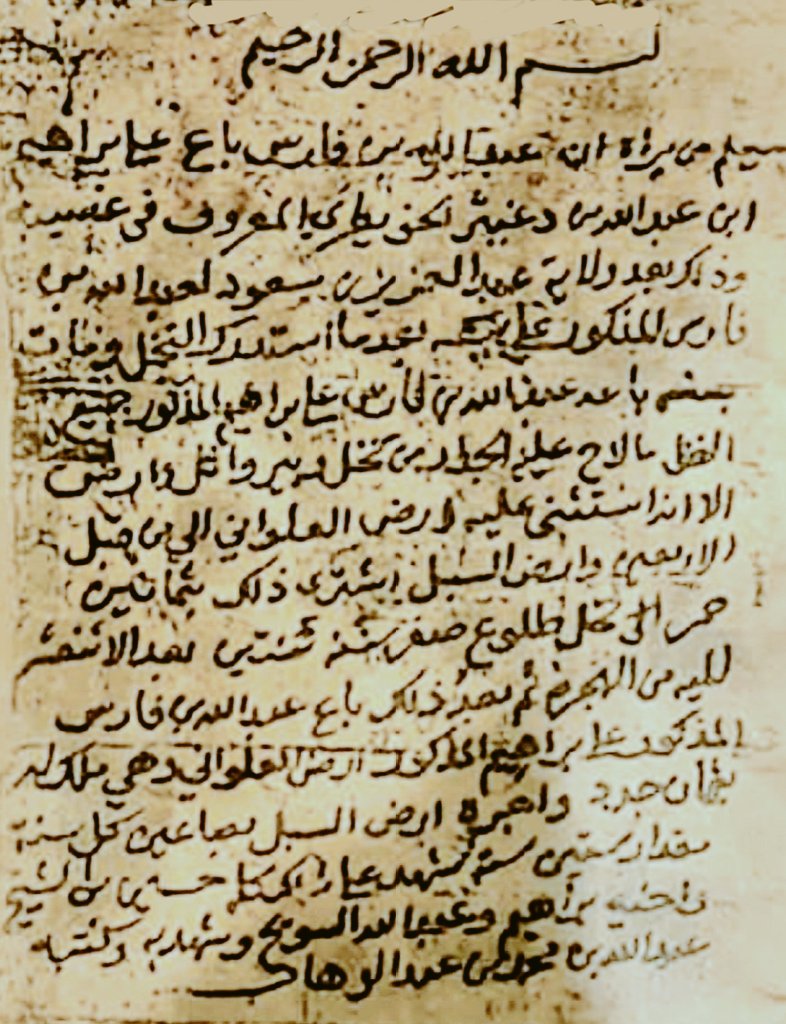 بسم الله الرحمن الرحيم
يعلم من يراه ان عبد الله بن فارس باع على ابراهيم
ابن عبد الله بن دغيثر الحويطر المعروف في غصيبه
وذلك بعد ولاية عبد العزيز بن سعود لعبد الله بن
فارس المذكور على بعدما استدرك النخل وفات
باعه عبد الله بن فارس على ابراهيم المذكور جميع
النخل ما لاح عليه الجدار من نخل وبير واثل وارض
الا انه استثنى عليه ارض العلواني الي من قبل
الاربعين وارض السبل اشترى ذلك بثمانين
حمر الى طلوع صفر سنة ثنتين بعد الاثنعشر
لليه من الهجرة ثم بعد ذلك باع عبد الله بن فارس
المذكور على ابراهيم المذكور ارض العلواني وهي ملك له
بثمان جدد واجره ارض السبل بصاعين كل سنة
مقدار ستين سنة شهد على ذلك حسين بن الشيخ
واخيه ابراهيم وعبد الله السويح وشهد به وكتبه
عبد الله بن محمد بن عبد الوهاب